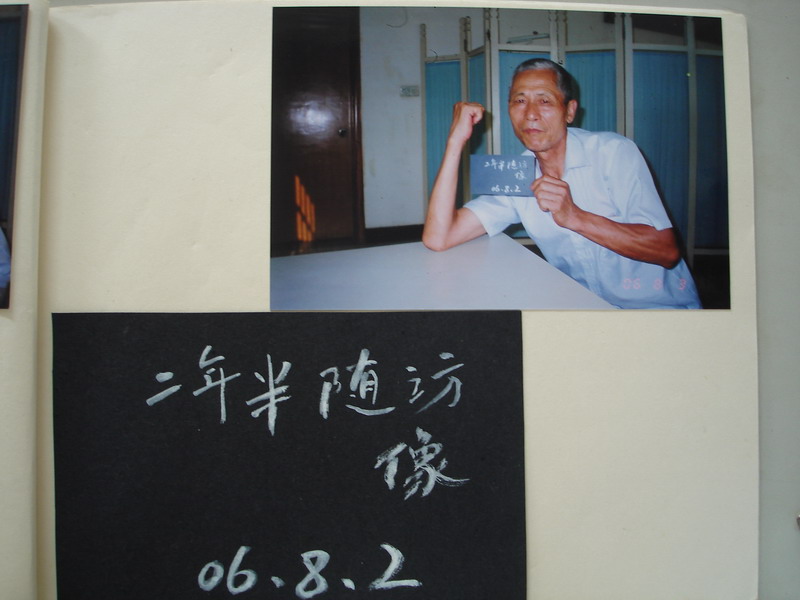 二年半随访
像
06.8.2
06 8 3
二年半随访
像
06、8、2